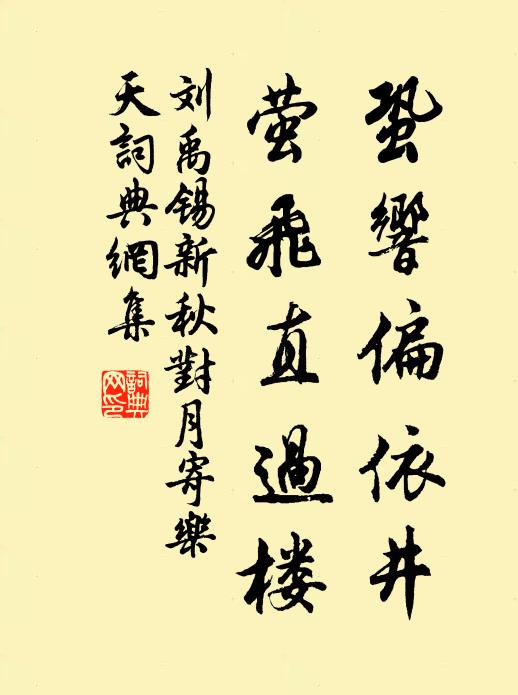 蛩響偏依井
萤飛直過楼
刘禹锡新秋對月寄樂
天詞典網集
詞典
网印